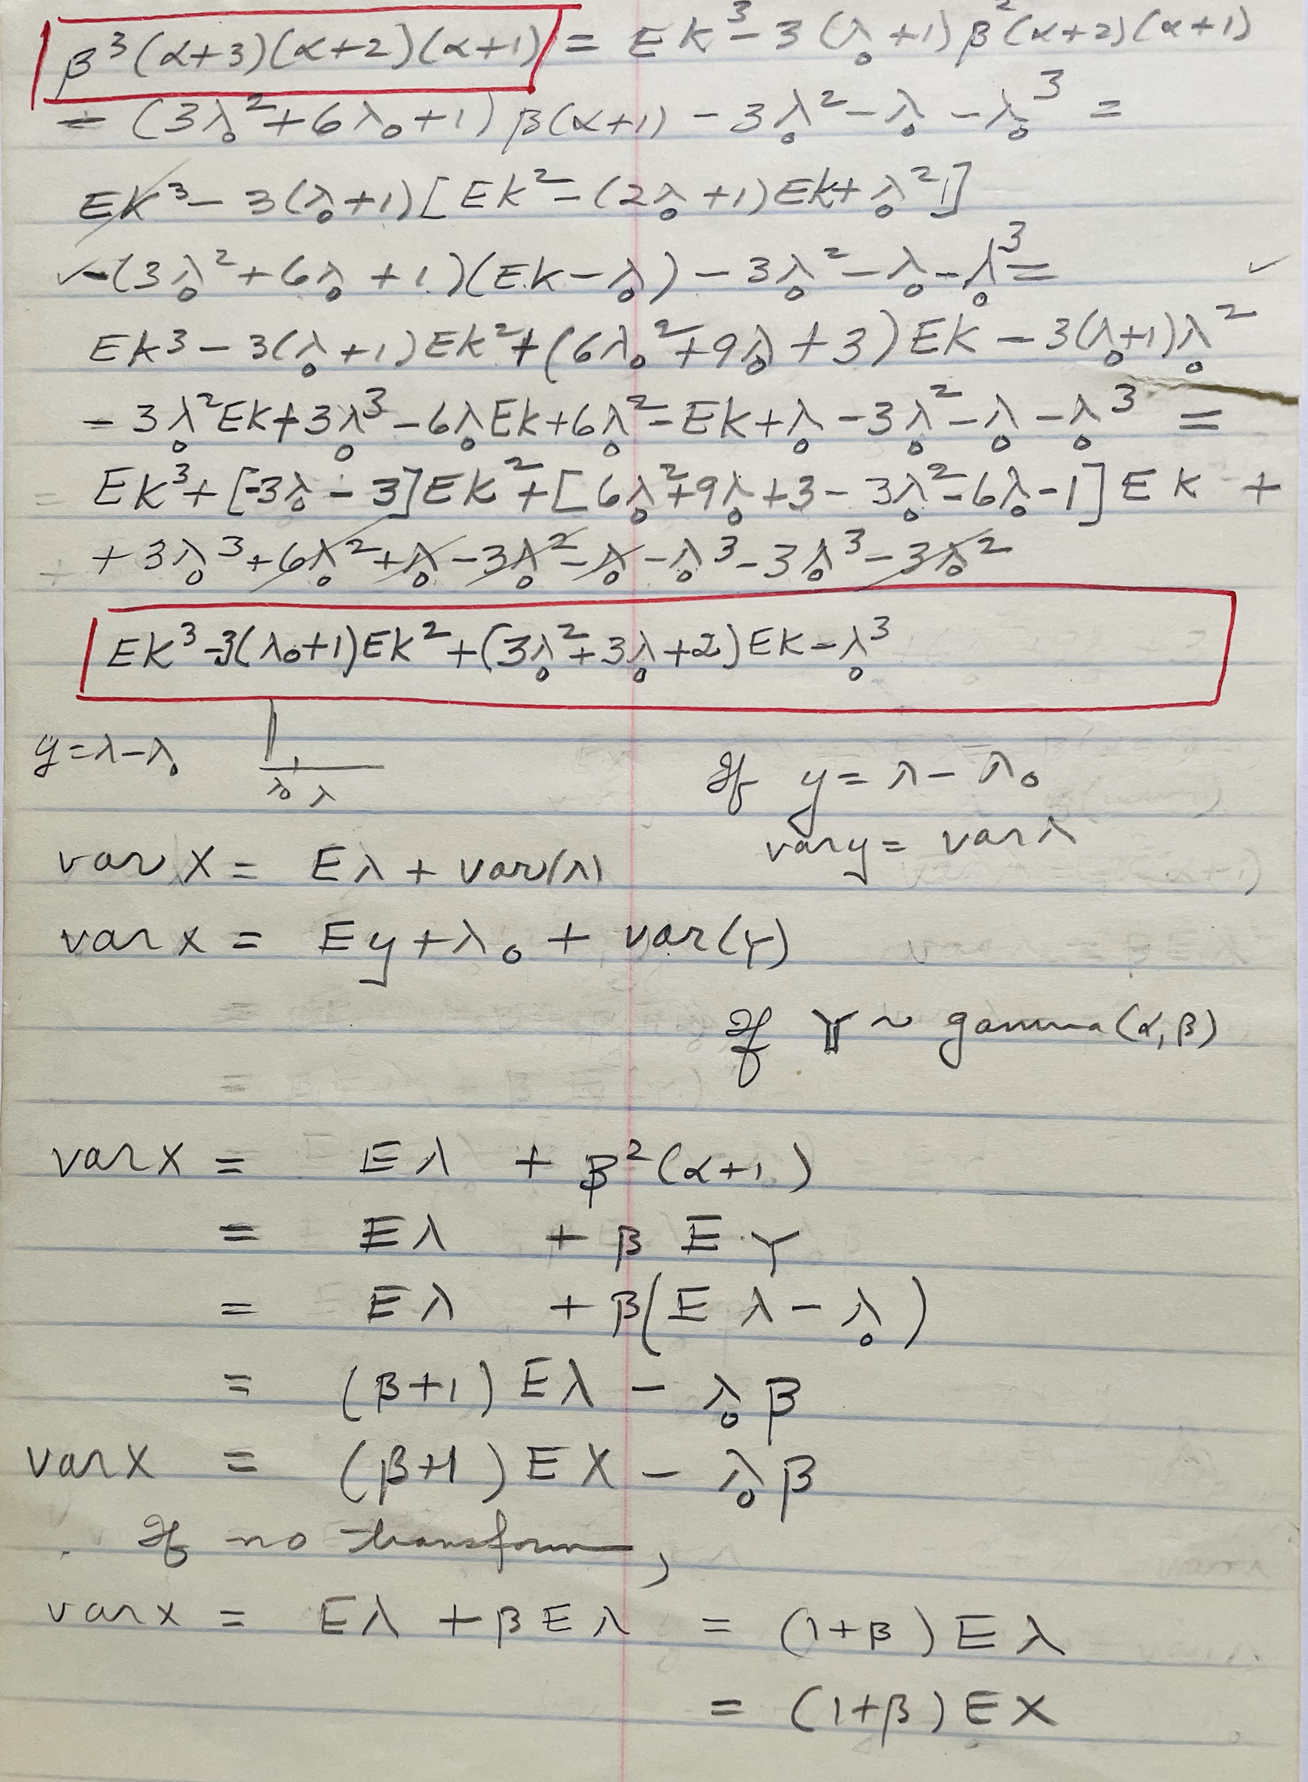 β³(α+3)(α+2)(α+1) = EK³ - 3(λ₀+1)β²(α+2)(α+1)
- (3λ₀²+6λ₀+1)β(α+1) - 3λ₀² - λ₀ - λ₀³ =
EK³ - 3(λ₀+1)[EK² - (2λ₀+1)EK + λ₀²]
✓ -(3λ₀²+6λ₀+1)(EK-λ₀) - 3λ₀² - λ₀ - λ₀³ = ✓
EK³ - 3(λ₀+1)EK² + (6λ₀²+9λ₀+3)EK - 3(λ₀+1)λ₀²
- 3λ₀²EK + 3λ₀³ - 6λ₀EK + 6λ₀² - EK + λ₀ - 3λ₀² - λ₀ - λ₀³ =
= EK³ + [-3λ₀ - 3]EK² + [6λ₀²+9λ₀+3 - 3λ₀² - 6λ₀ - 1]EK +
+ 3λ₀³ + 6λ₀² + λ₀ - 3λ₀² - λ₀ - λ₀³ - 3λ₀³ - 3λ₀²
EK³ - 3(λ₀+1)EK² + (3λ₀²+3λ₀+2)EK - λ₀³
y = λ - λ₀
λ₀ λ
If y = λ - λ₀
var y = var λ
var X = Eλ + var(λ)
var x = Ey + λ₀ + var(Y)
If Y ~ gamma(α, β)
var X = Eλ + β²(α+1)
= Eλ + β E Y
= Eλ + β(Eλ - λ₀)
= (β+1)Eλ - λ₀β
var X = (β+1)EX - λ₀β
If no transform,
var x = Eλ + βEλ = (1+β)Eλ
= (1+β)EX